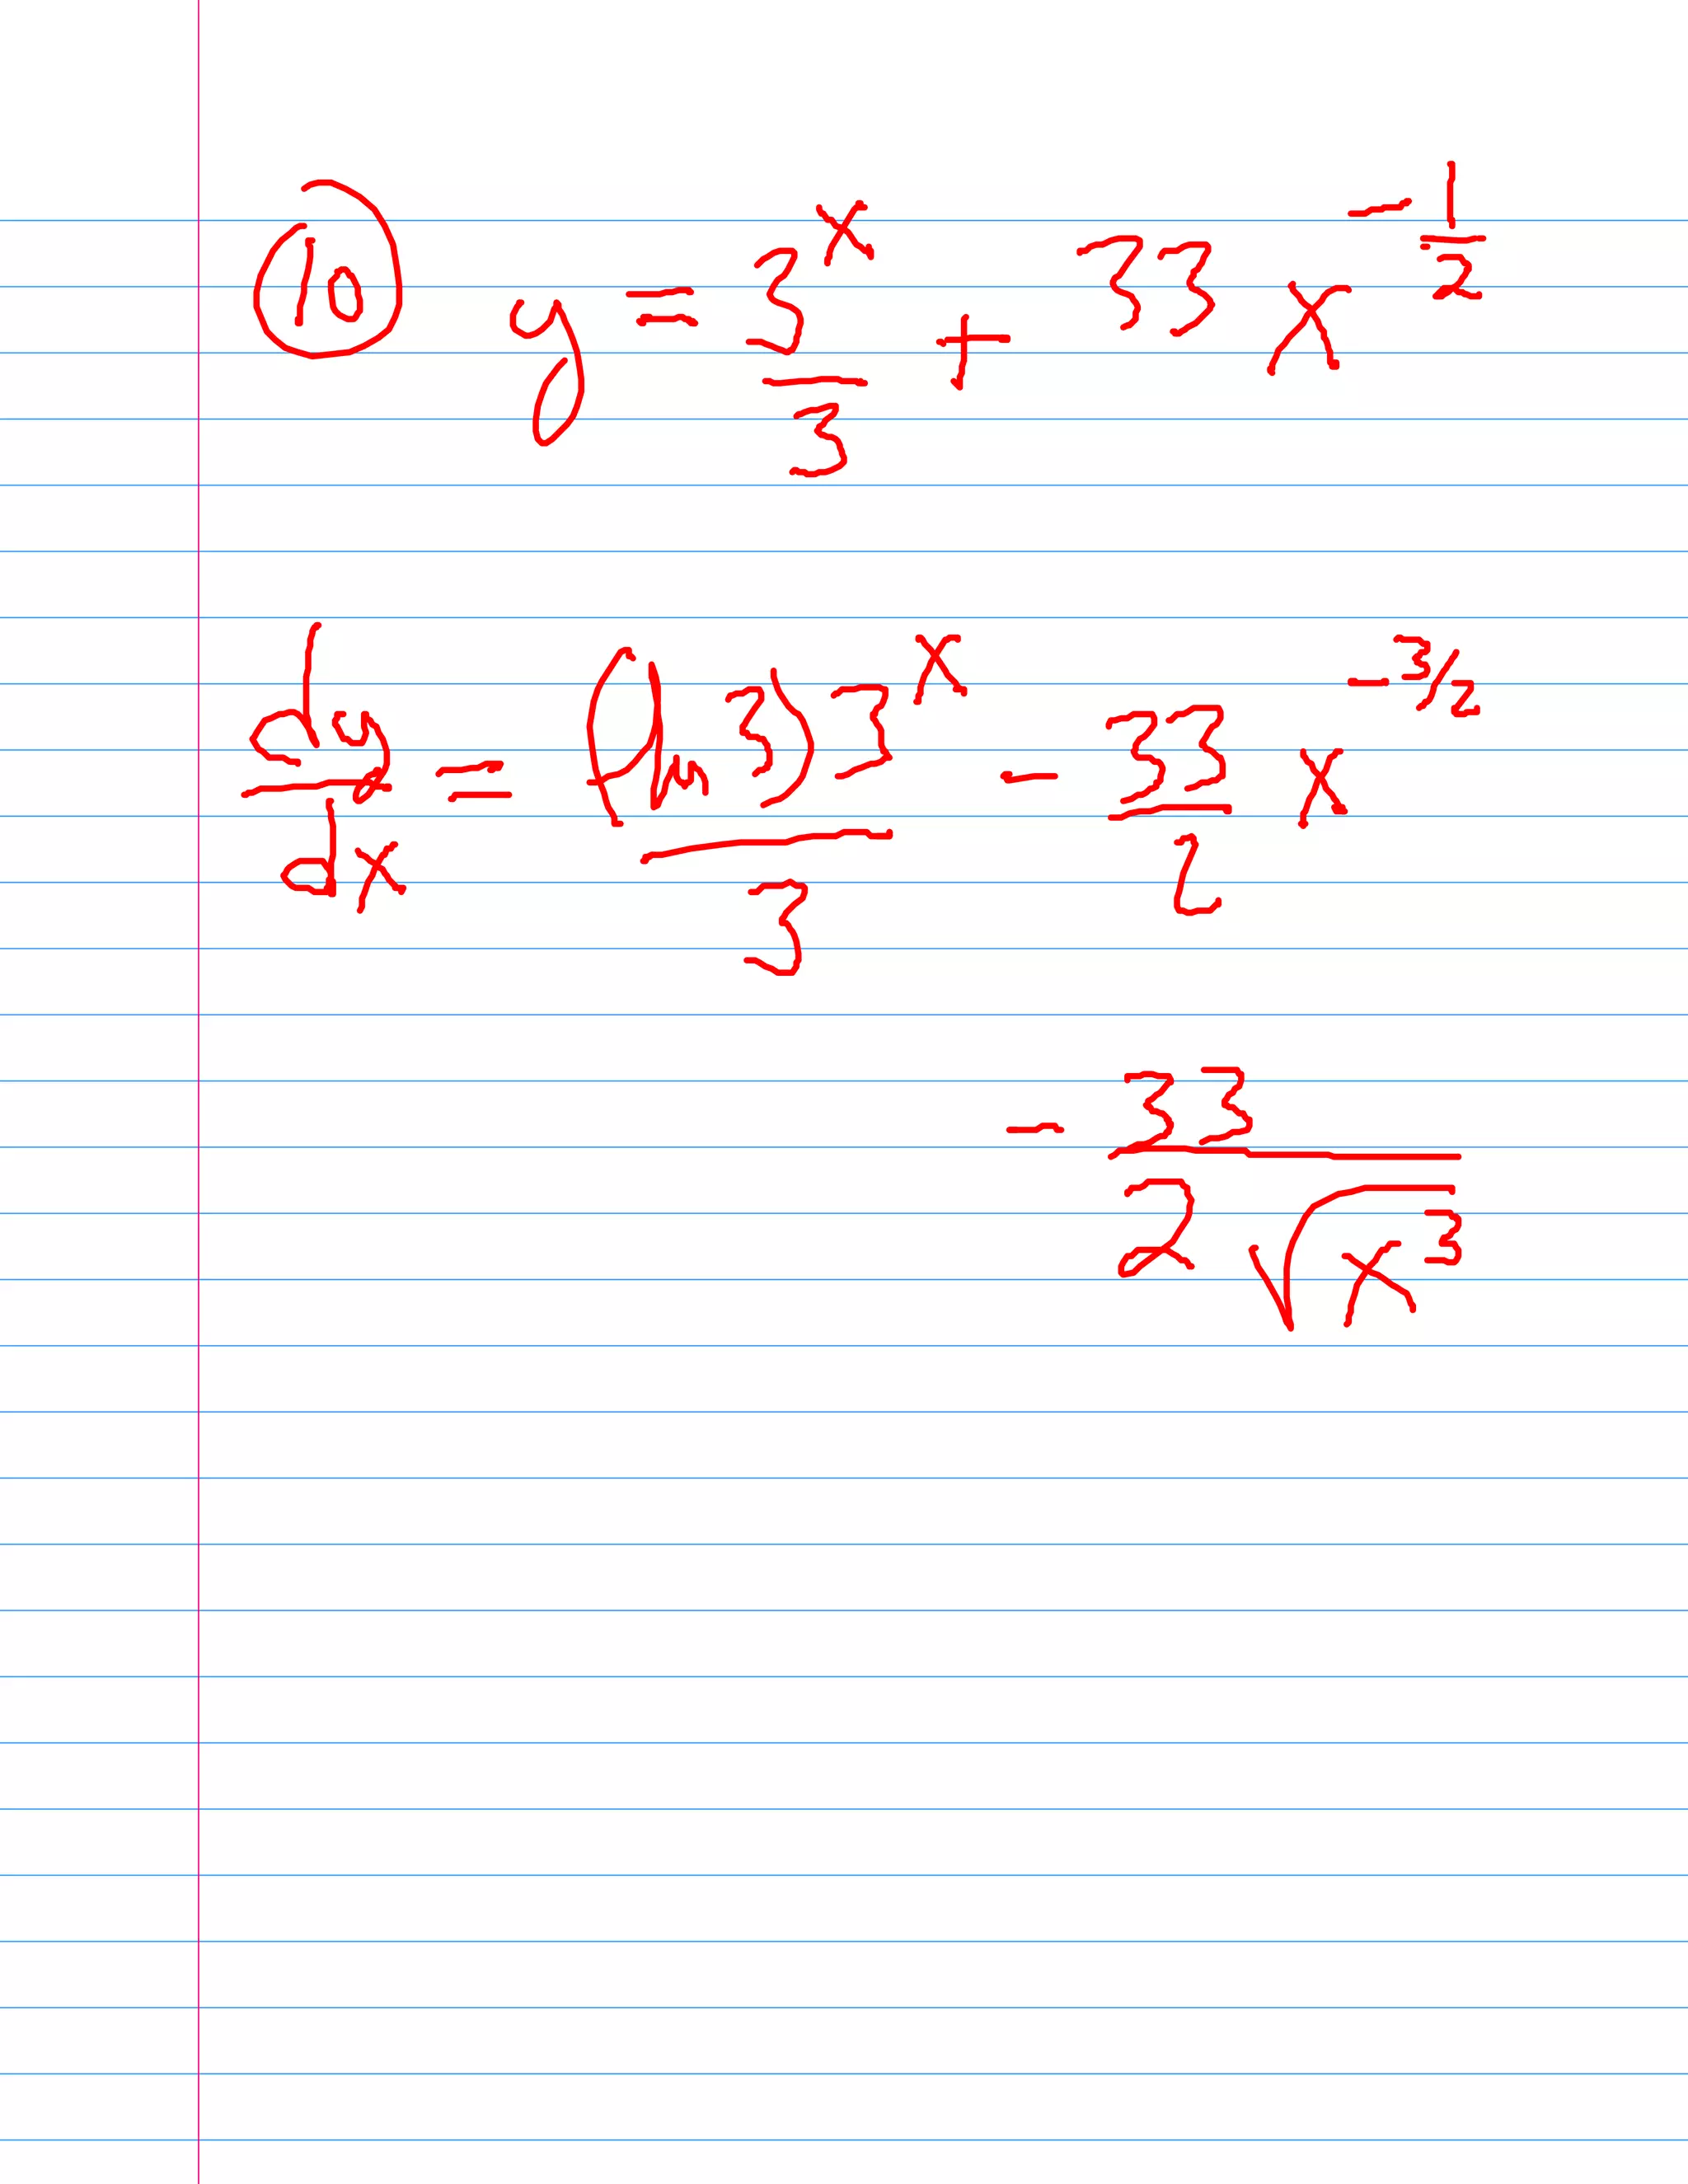 ⑩ y = 3^x/3 + 33x^(-1/2)
dy/dx = (ln3)3^x/3 - 33/2 x^(-3/2)
- 33/(2√(x^3))